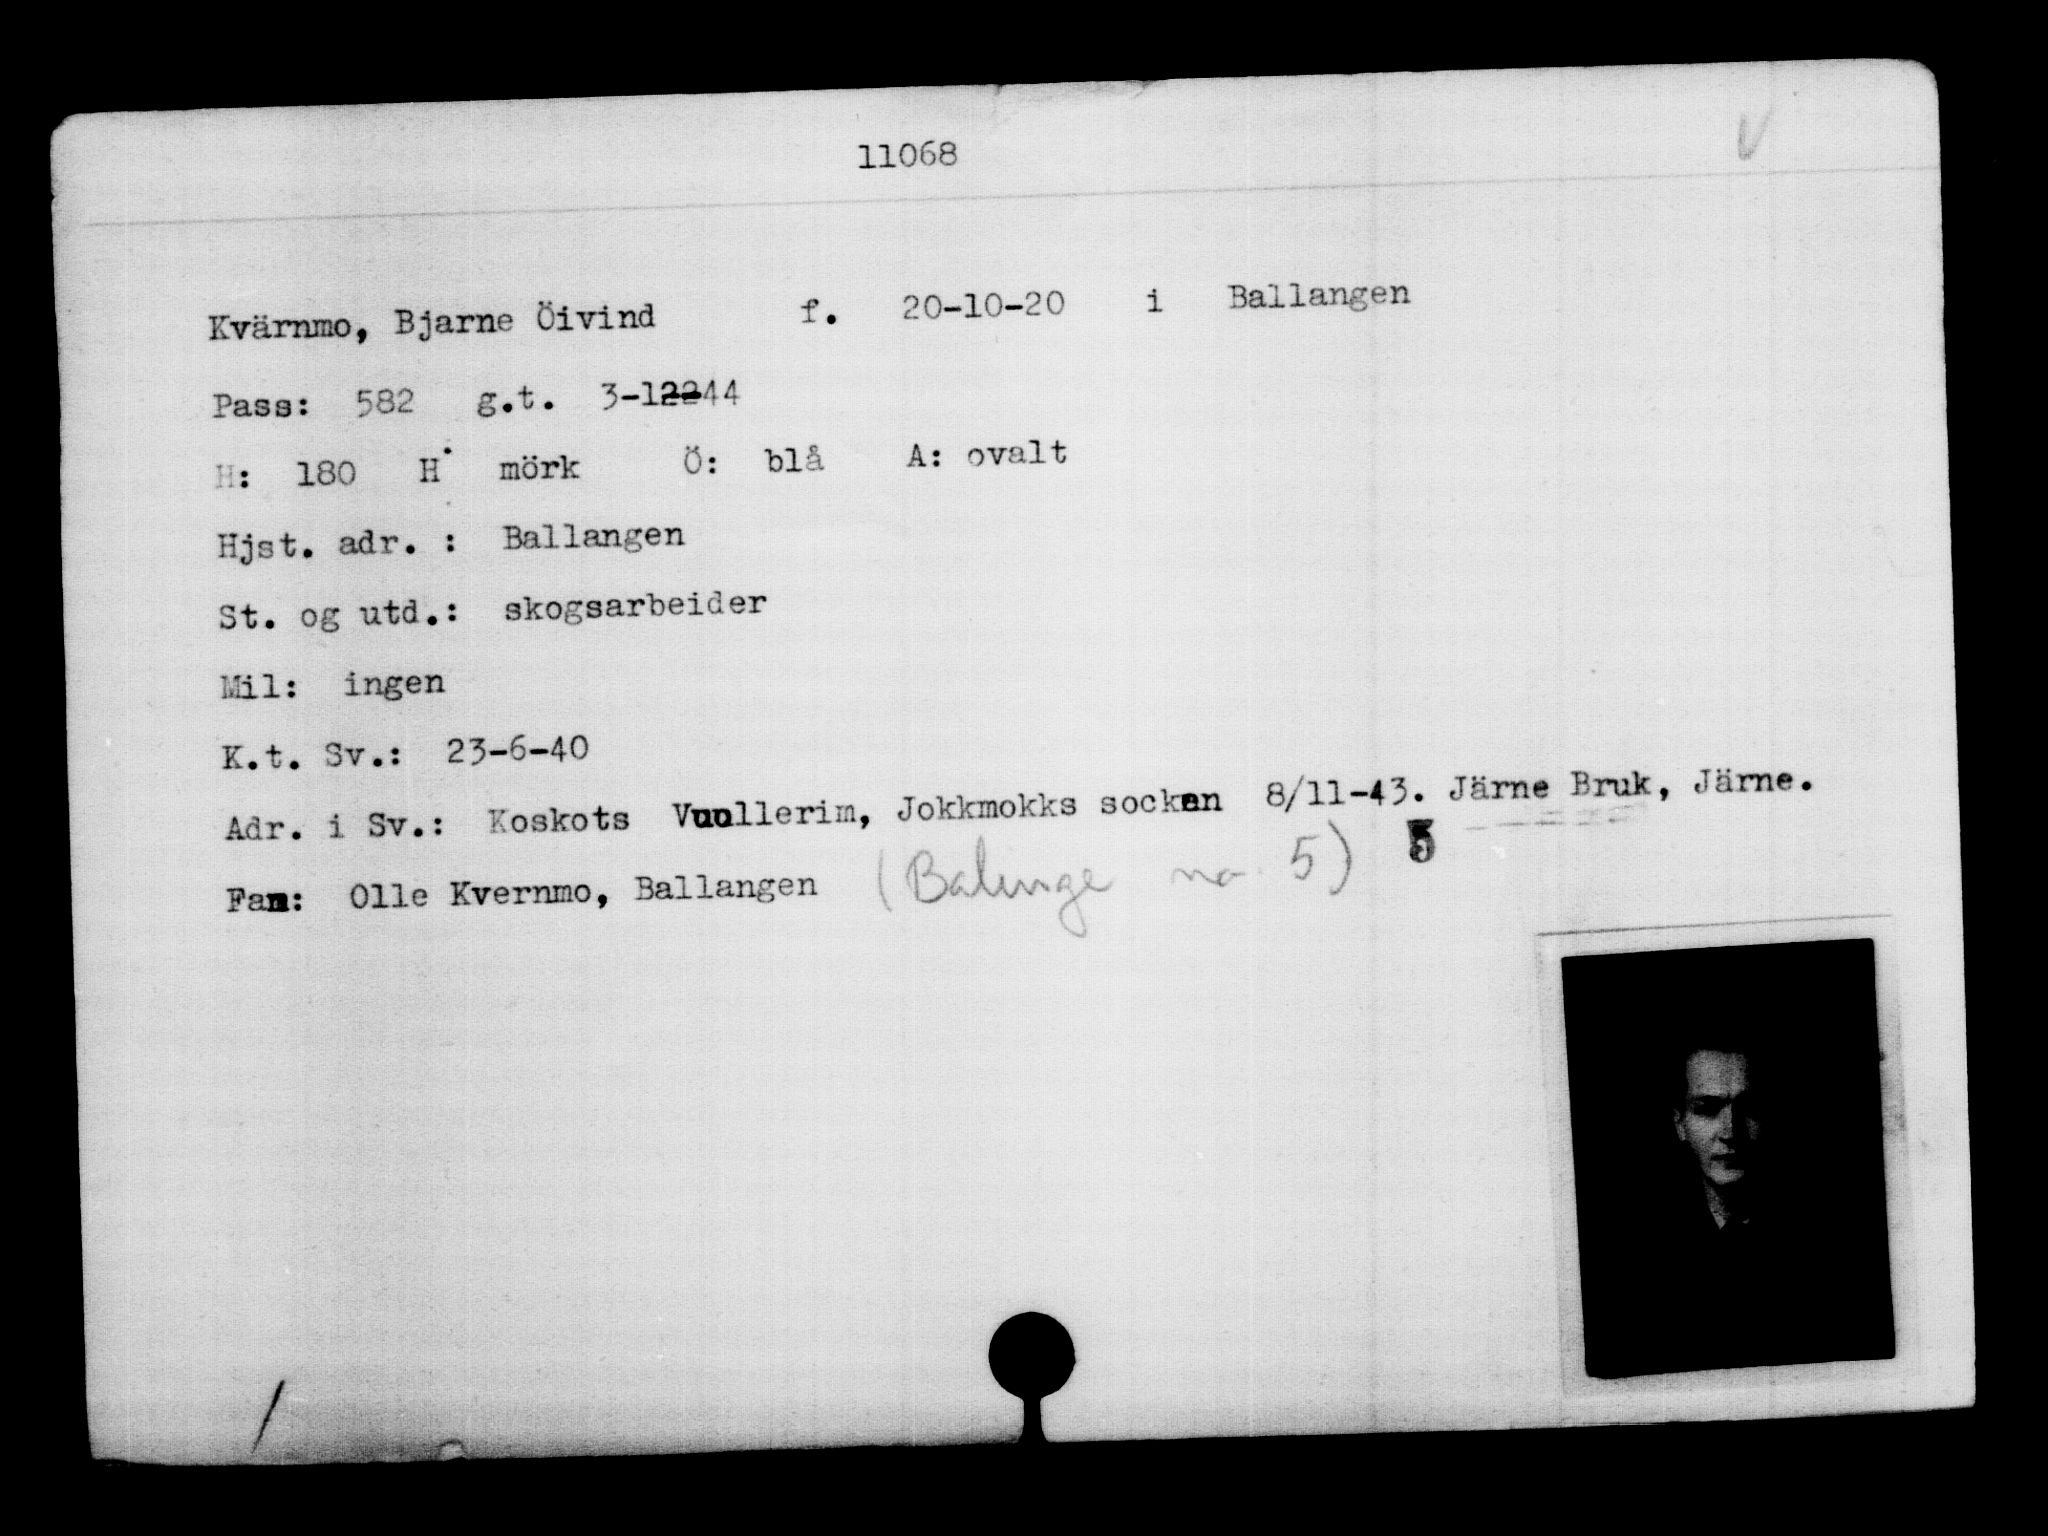 11068
Kvärnmo, Bjarne Öivind f. 20-10-20 i Ballangen
Pass: 582 g.t. 3-12-44
H: 180 H: mörk Ö: blå A: ovalt
Hjst. adr. : Ballangen
St. og utd.: skogsarbeider
Mil: ingen
K.t. Sv.: 23-6-40
Adr. i Sv.: Koskots Vuollerim, Jokkmokks socken 8/11-43. Järne Bruk, Järne.
Fam: Olle Kvernmo, Ballangen (Balinge no 5) 5